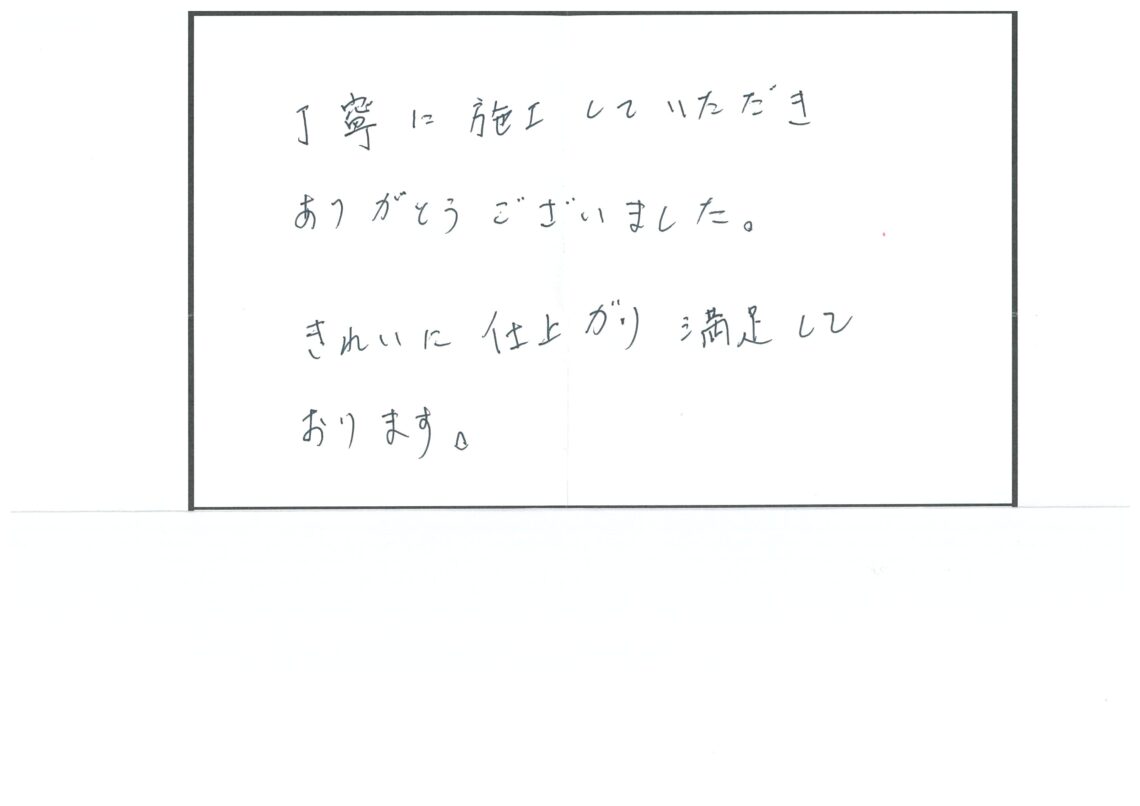 丁寧に施工していただき
ありがとうございました。
きれいに仕上がり満足して
おります。